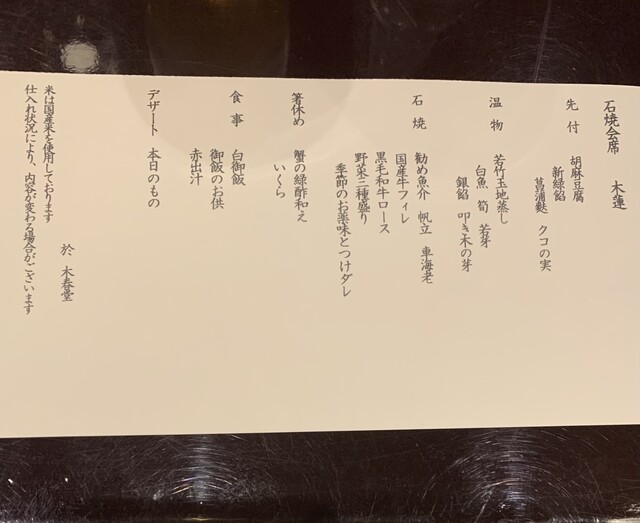 石焼会席　木蓮
先付　胡麻豆腐
新緑餡
菖蒲麩　クコの実
温物　若竹玉地蒸し
白魚　筍　若芽
銀餡　叩き木の芽
石焼　勧め魚介　帆立　車海老
国産牛フィレ
黒毛和牛ロース
野菜三種盛り
季節のお薬味とつけダレ
箸休め　蟹の緑酢和え
いくら
食事　白御飯
御飯のお供
赤出汁
デザート　本日のもの
於　木春堂
米は国産米を使用しております
仕入れ状況により、内容が変わる場合がございます